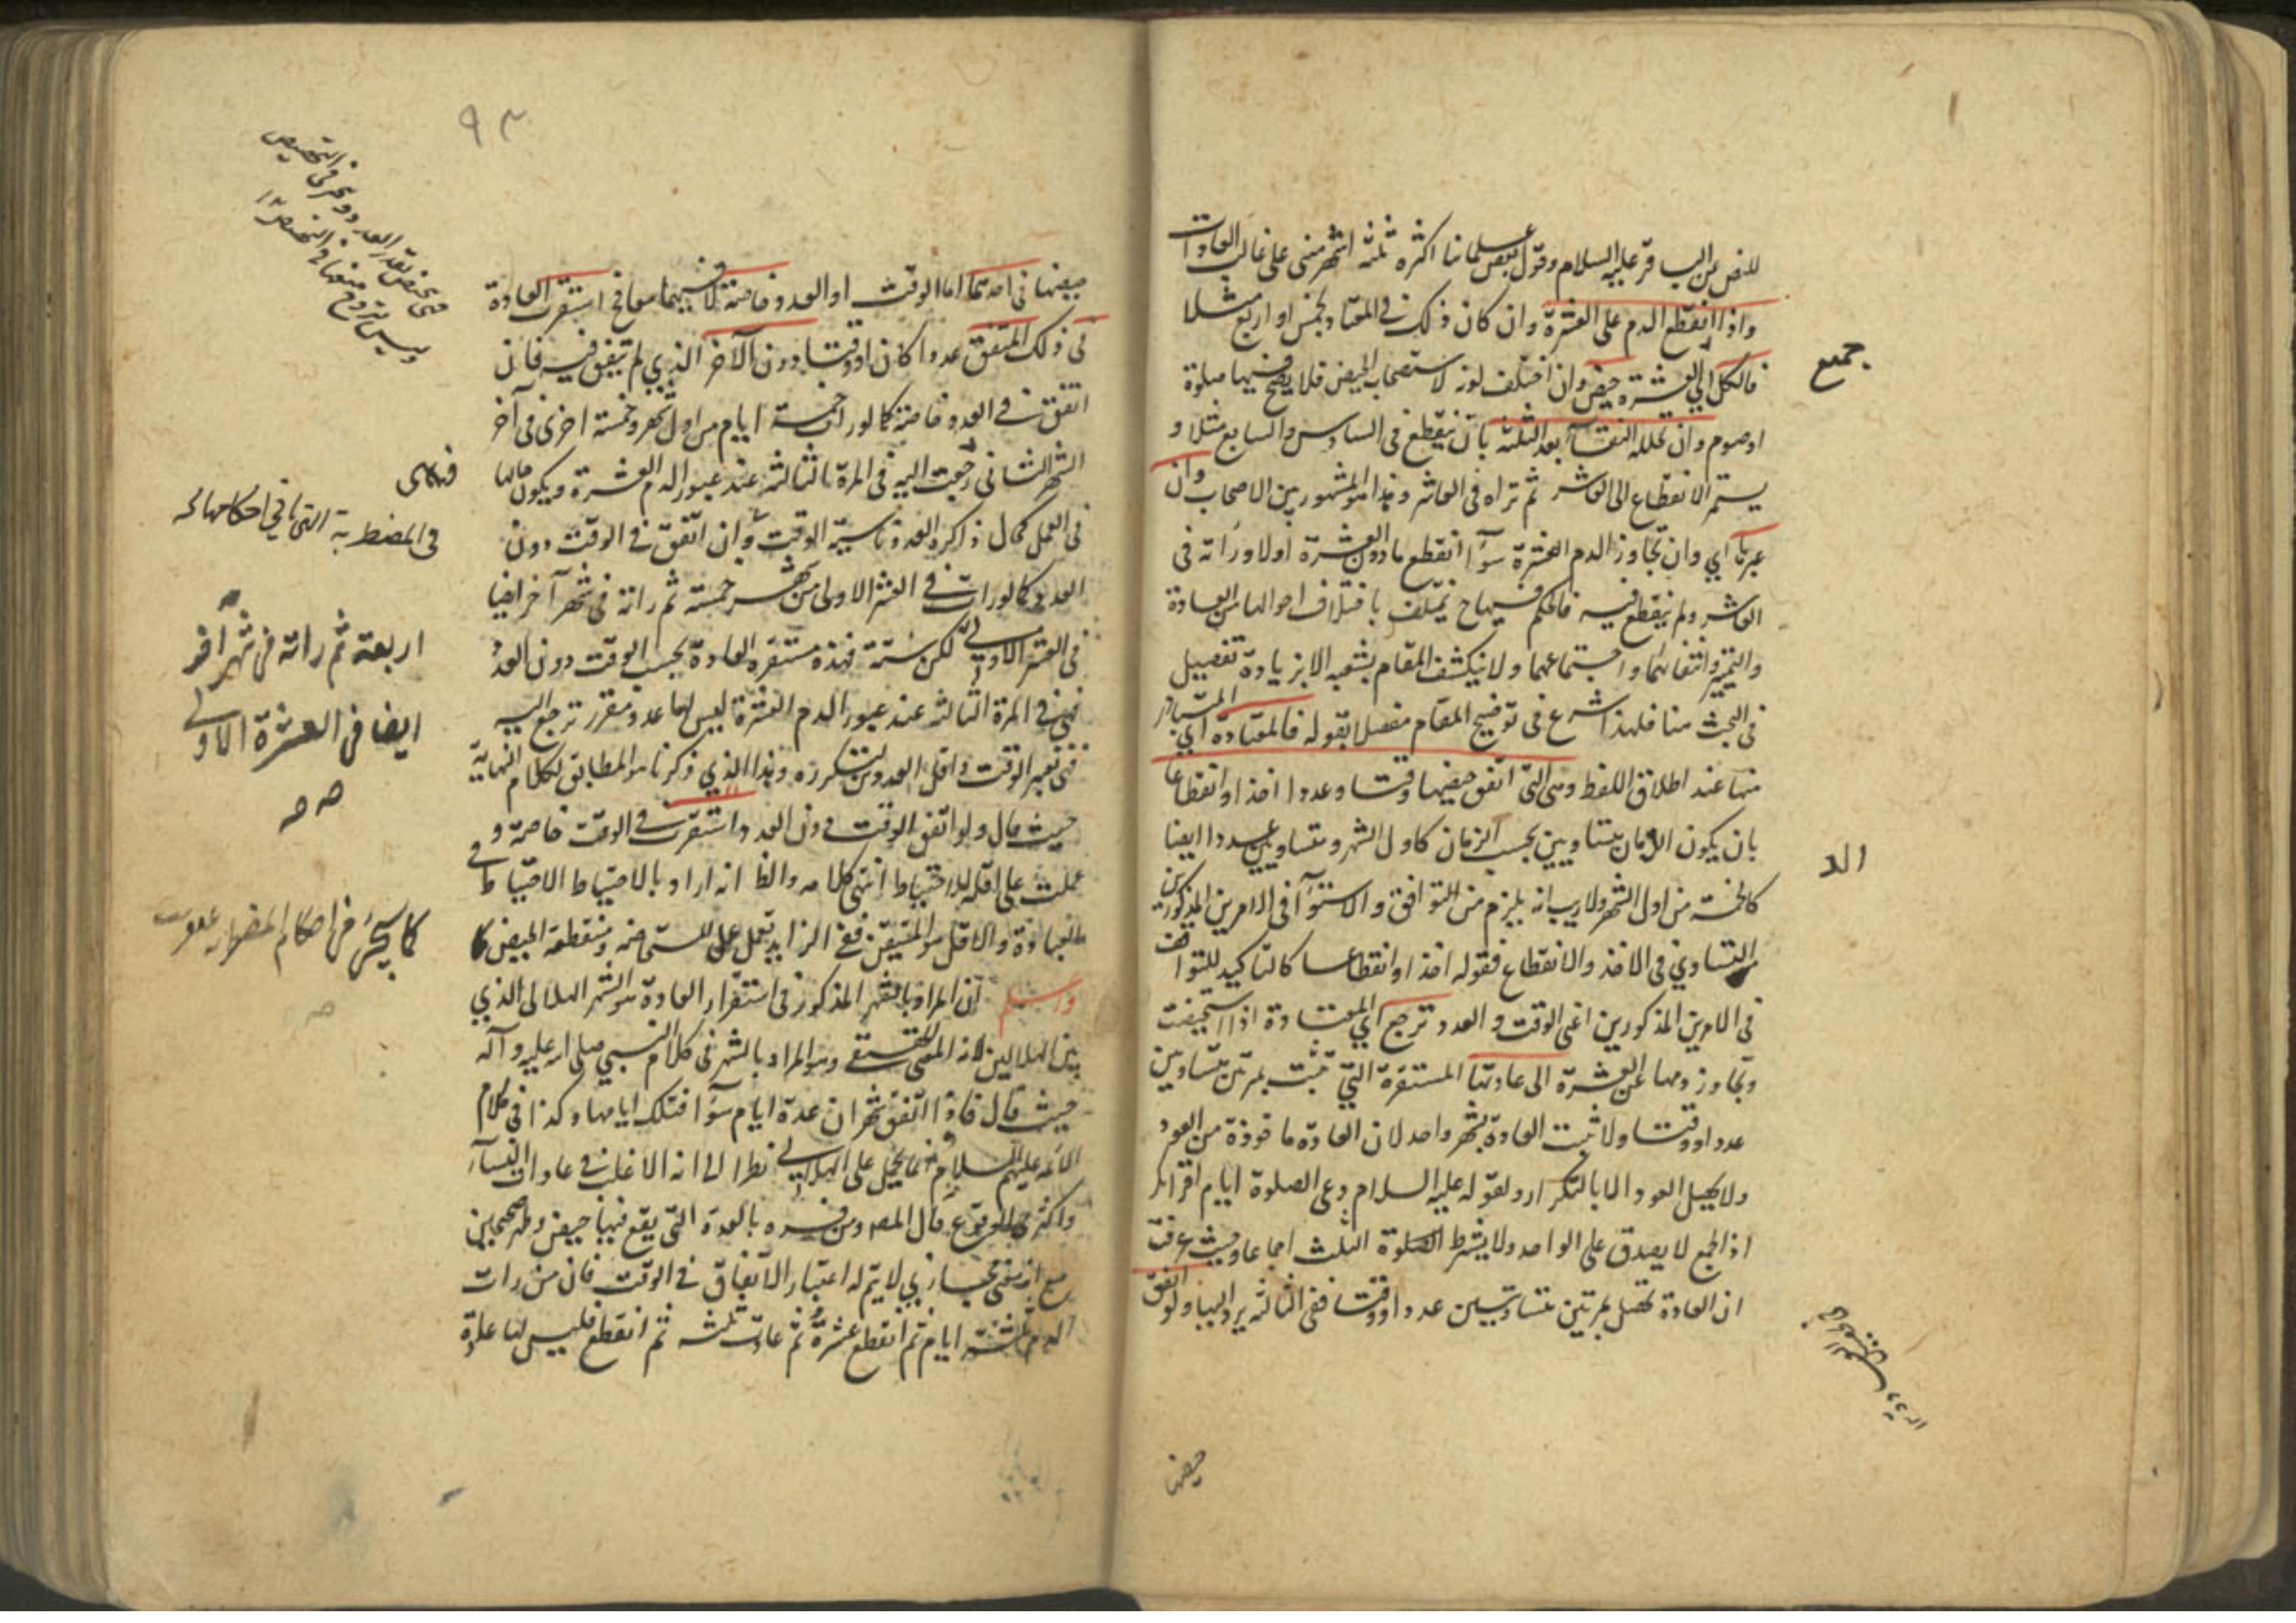 للنص عن الباقر عليه السلام وقول بعض علمائنا اكثره ثلثة اشهر مبنى على غالب العادات
واذا انقطع الدم على العشرة وان كان ذلك فى المعتاد لخمس او اربع مثلا
فالكل الى العشرة حيض وان اختلف لونه لاستصحاب الحيض فلا يصح فيها صلوة
جميع
او صوم وان تخلله النقاء بعد الثلثة بان ينقطع فى السادس والسابع مثلا و
يستمر الانقطاع الى العاشر ثم تراه فى العاشر وهذا هو المشهور بين الاصحاب وان
عبرها اي وان تجاوز الدم العشرة سواء انقطع ما دون العشرة اولا وراته فى
العاشر ولم ينقطع فيه فالحكم فيها ح يختلف باختلاف احوالها من العادة
والتميز وانتفائهما واجتماعهما ولا ينكشف المقام بشعبه الا بزيادة تفصيل
فى البحث هنا فلهذا شرع فى توضيح المقام مفصلا بقوله فالمعتادة اي المتبادر
منها عند اطلاق اللفظ وهى التى اتفق حيضها وقتا وعددا اخذا وانقطاعا
بان يكون الزمان متساويين بحسب الزمان كاول الشهر ومتساويين عددا ايضا
الد
كالخمسة من اول الشهر ولاريب انه يلزم من التوافق والاستواء فى الامرين المذكورين
التساوي فى الاخذ والانقطاع فقوله اخذا وانقطاعا كالتاكيد للتوافق
فى الامرين المذكورين اعنى الوقت والعدد ترجع اي المعتادة اذا استحيضت
وتجاوز دمها عن العشرة الى عادتها المستقرة التي تثبت بمرتين متساويين
عددا ووقتا ولا تثبت العادة بشهر واحد لان العادة ماخوذة من العود
ولا يحصل العود الا بالتكرار ولقوله عليه السلام دعى الصلوة ايام اقرائك
اذ الجمع لا يصدق على الواحد ولا يشترط الثلث اجماعا وحيث عرفت
ان العادة تحصل بمرتين متساويتين عددا ووقتا ففى الثالثة يرد اليها ولو اتفق
حيضها
٩٣
حيضها فى احدهما اما الوقت او العدد خاصة لا فيهما معا فح استقرت العادة
فى ذلك المتفق عددا كان او وقتا دون الآخر الذي لم يتفق فيه فان
اتفق فى العدد خاصة كما لو رات خمسة ايام من اول شهر وخمسة اخرى فى آخر
الشهر الثانى رجعت اليه فى المرة الثالثة عند عبور الدم العشرة ويكون حالها
فى العمل كحال ذاكرة العدد ناسية الوقت وان اتفق فى الوقت دون
فى المضطربة التى تاتي احكامها
العدد كما لو رات فى العشر الاولى من شهر خمسة ثم راته فى شهر آخر ايضا
فى العشر الاولى لكن ستة فهذه مستقرة العادة بحسب الوقت دون العدد
اربعة ثم راته فى شهر آخر
ايضا فى العشرة الاولى
فهى فى المرة الثالثة عند عبور الدم العشرة ليس لها عدد مقرر ترجع اليه
فتعبر الوقت واقل العددين لتكرره وهذا الذي ذكرنا هو المطابق لكلام النهاية
حيث قال ولو اتفق الوقت دون العدد استقرت فى الوقت خاصة و
عملت على اقله للاحتياط انتهى كلامه والظ انه اراد بالاحتياط الاحتياط فى
العبادة والاقل هو المتيقن ففى الزايد تعمل عمل المستحاضة ومنقطعة الحيض
كما سيجئ فى احكام
واعلم ان المراد بالشهر المذكور فى استقرار العادة هو الشهر الهلالى الذي
بين الهلالين لانه المعنى الحقيقي وهو المراد بالشهر فى كلام النبي صلى الله عليه وآله
حيث قال فاذا اتفق شهران عدة ايام سواء فتلك ايامها وكذا فى كلام
الائمة عليهم السلام وانما يحمل على الهلالي نظرا الى انه الاغلب فى عادات النساء
واكثرى الوقوع قال المصه ومن فسره بالعدة التى يقع فيها حيض وطهر صحيحين
مع انه معنى مجازي لا يتم له اعتبار الاتفاق فى الوقت فان من رات
الدم ثلثة ايام ثم انقطع عشرة ثم عادت ثلثة ثم انقطع فليس لها عادة